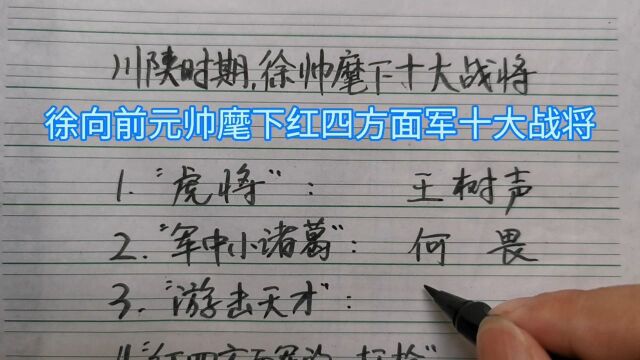 川陕时期,徐帅麾下十大战将
徐向前元帅麾下红四方面军十大战将
1."虎将": 王树声
2."军中小诸葛": 何畏
3."游击天才":
红四方面军的